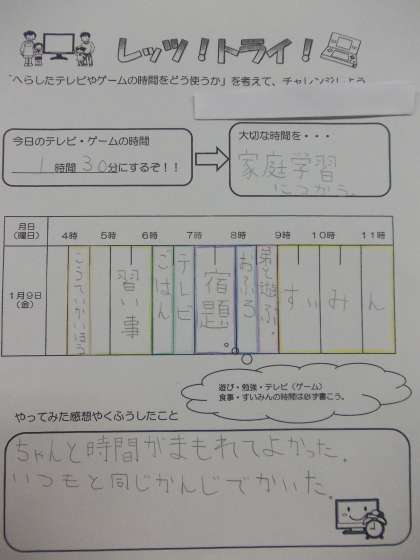 レッツ!トライ!
"へらしたテレビやゲームの時間をどう使うか"を考えて、チャレンジしよう
今日のテレビ・ゲームの時間
1時間30分にするぞ!!
大切な時間を・・・
家庭学習
につかう。
月日
(曜日)
4時 5時 6時 7時 8時 9時 10時 11時
1月9日
(金)
こうていかいほう
習い事
ごはん
テレビ
宿題
おふろ
弟と遊ぶ。
すいみん
遊び・勉強・テレビ(ゲーム)
食事・すいみんの時間は必ず書こう。
やってみた感想やくふうしたこと
ちゃんと時間がまもれてよかった。
いつもと同じかんじでかいた。